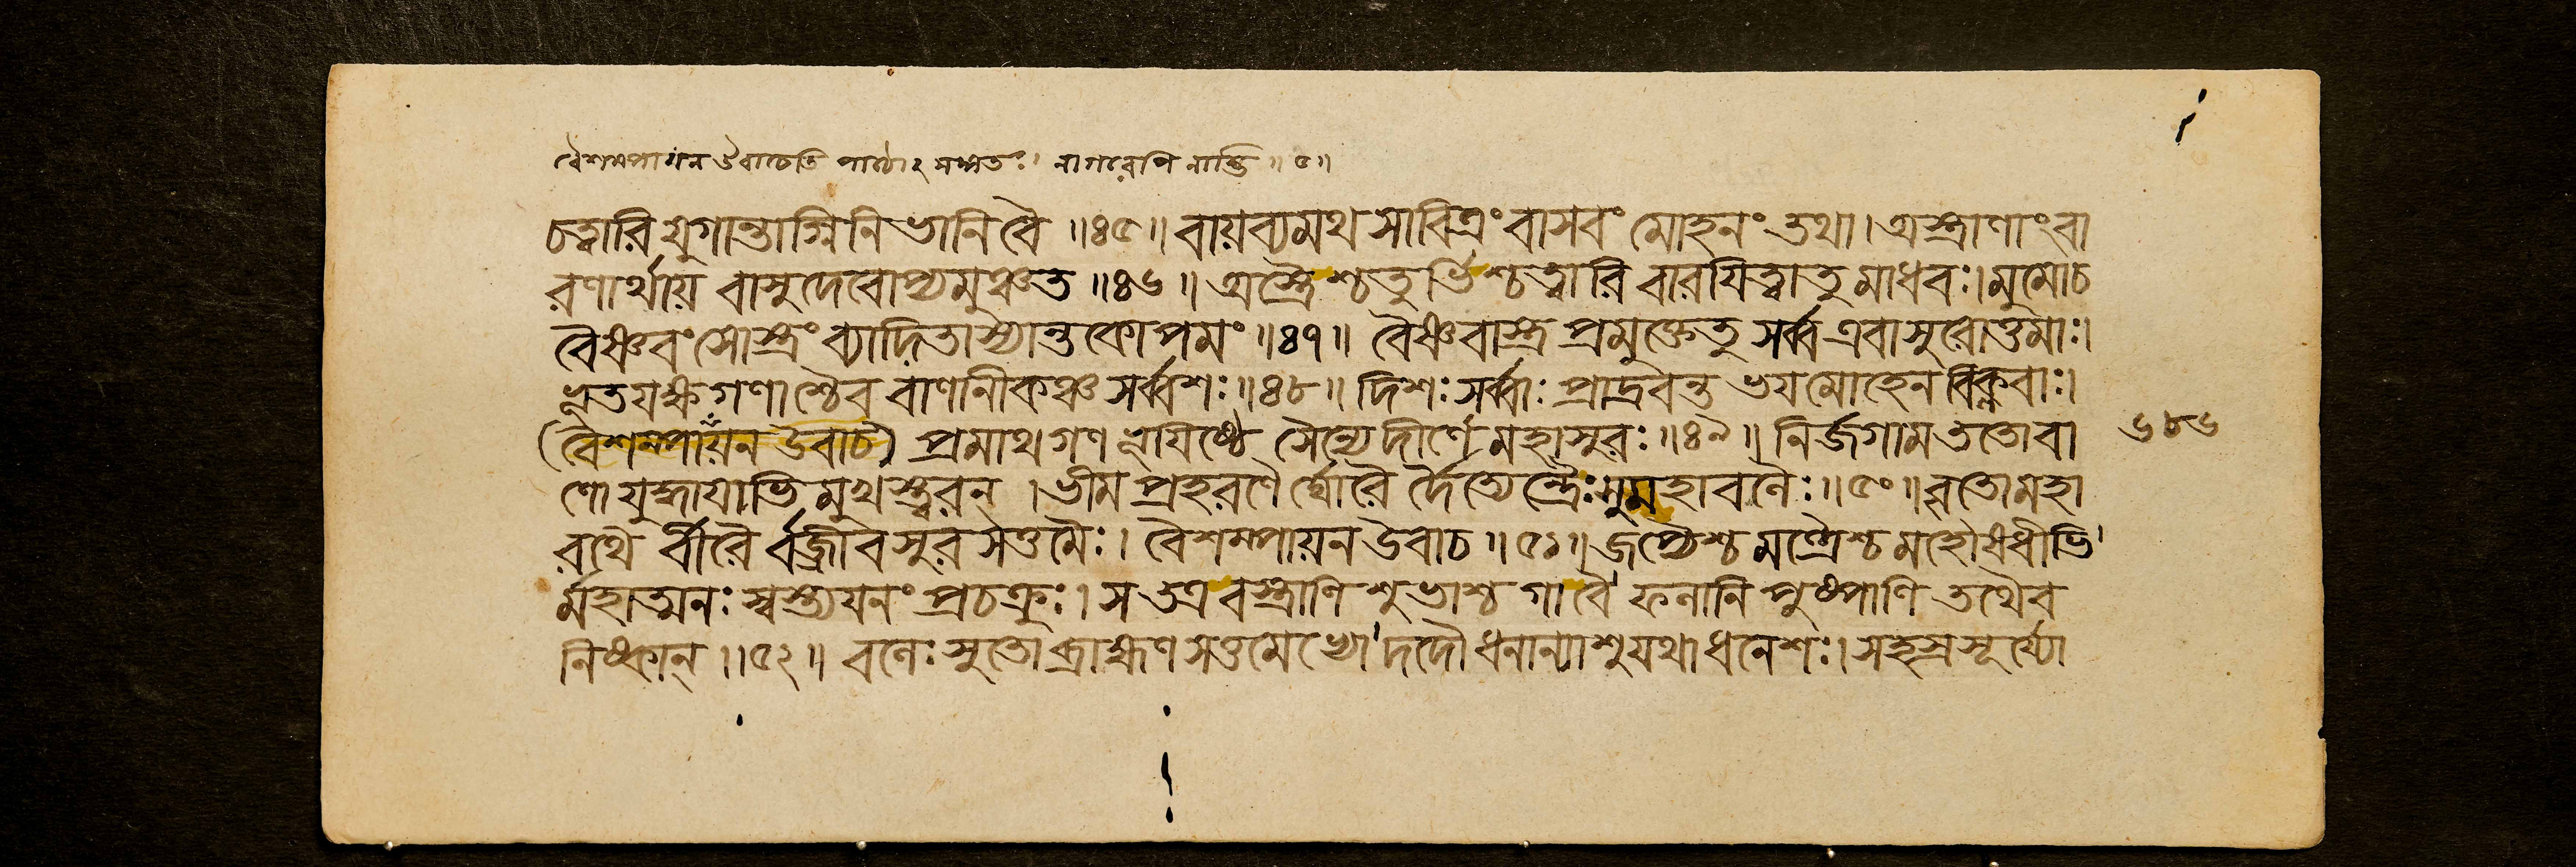 বৈশম্পায়ন উবাচেতি পাঠোঽসঙ্গতঃ। নাগরেপি নাস্তি ॥ ৫॥
চত্বারি যুগান্তাগ্নিনিভানি বৈ ॥৪৫॥ বায়ব্যমথ সাবিত্রং বাসবং মোহনং তথা। অস্ত্রাণাং বা
রণার্থায় বাসুদেবোপ্যমুঞ্চত ॥৪৬॥ অস্ত্রৈশ্চতুর্ভিশ্চত্বারি বারয়িত্বাতু মাধবঃ। মুমোচ
বৈষ্ণবং সোস্ত্রং ব্যাদিতাস্যান্তকোপমং ॥৪৭॥ বৈষ্ণবাস্ত্রে প্রমুক্তেতু সর্ব্ব এবাসুরোত্তমাঃ।
ভূতযক্ষগণাশ্চৈব বাণানীকঞ্চ সর্ব্বশঃ ॥৪৮॥ দিশঃ সর্ব্বাঃ প্রাদ্রবন্ত ভয়মোহেন বিক্লবাঃ।
(বৈশম্পায়ন উবাচ) প্রমাথগণভূয়িষ্ঠে সৈন্যে দীর্ণে মহাসুরঃ ॥৪৯॥ নির্জগাম ততো বা ৬৮৬
ণো যুদ্ধায়াভিমুখস্ত্বরন্ । ভীমপ্রহরণৈর্ঘোরৈর্দৈত্যেন্দ্রৈঃ সুমহাবলৈঃ ॥৫০॥ বৃতো মহা
রথৈর্বীরৈর্বজ্রীব সুরসত্তমৈঃ। বৈশম্পায়ন উবাচ ॥৫১॥ জপ্যৈশ্চ মন্ত্রৈশ্চ মহৌষধীভি
র্মহাত্মনঃ স্বস্ত্যয়নং প্রচক্রুঃ। স তত্র বস্ত্রাণি শুভাশ্চ গাবৈ ফলানি পুষ্পাণি তথৈব
নিষ্কান্ ॥৫২॥ বলেঃ সুতো ব্রাহ্মণসত্তমেভ্যো দদৌ ধনান্যাশু যথা ধনেশঃ। সহস্রসূর্য্যো